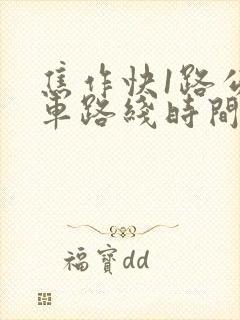 焦作快1路公
車路綫時間
福寶dd